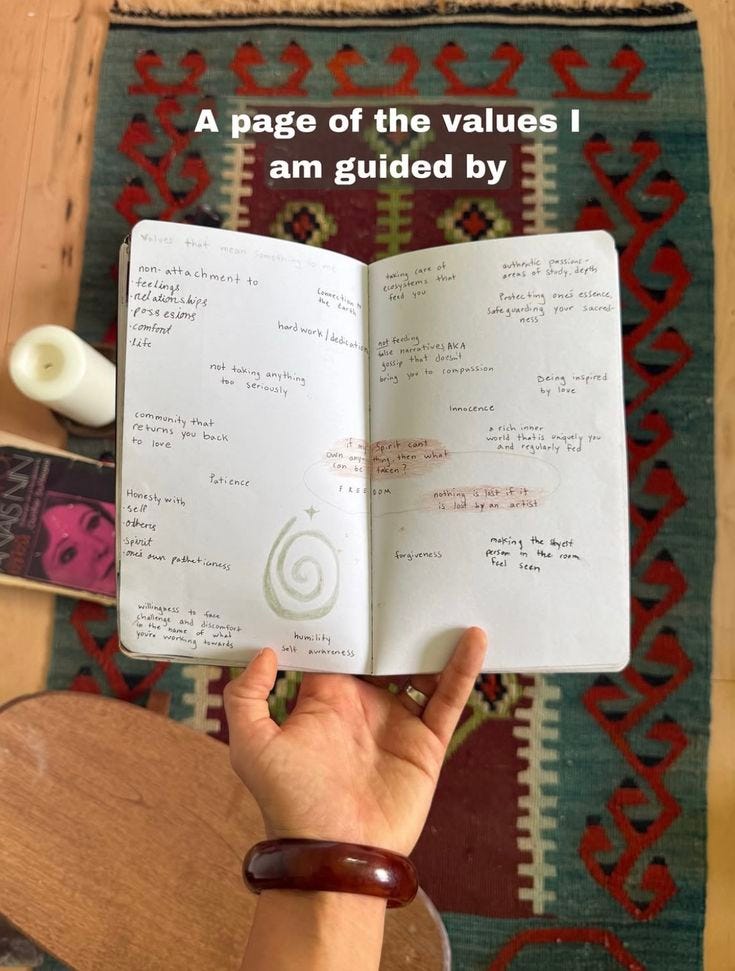 A page of the values I
am guided by
Values that mean something to me
non-attachment to
·feelings
·relationships
·possesions
·comfort
·life
connection to
the earth
hard work/dedication
not taking anything
too seriously
community that
returns you back
to love
Patience
Honesty with
·self
·others
·spirit
·one's own patheticness
willingness to face
challenge and discomfort
in the name of what
you're working towards
humility
self awareness
taking care of
ecosystems that
feed you
authentic passions-
areas of study, depth
Protecting one's essence,
safeguarding your sacred-
ness
not feeding
false narratives AKA
gossip that doesn't
bring you to compassion
Being inspired
by love
Innocence
a rich inner
world that is uniquely you
and regularly fed
if my spirit can't
own anything, then what
can be taken?
FREEDOM
nothing is lost if it
is lost by an artist
forgiveness
making the shyest
person in the room
feel seen
ANAIS NIN